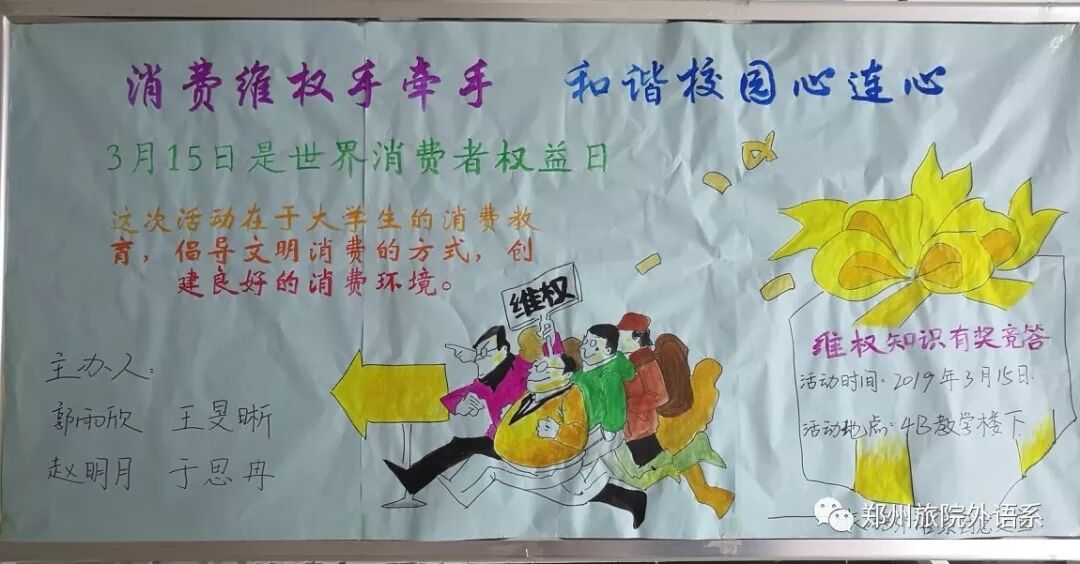 消费维权手牵手 和谐校园心连心
3月15日是世界消费者权益日
这次活动在于大学生的消费教
育，倡导文明消费的方式，创
建良好的消费环境。
维权
主办人：
郭雨欣 王旻晰
赵明月 于思冉
维权知识有奖竞答
活动时间：2019年3月15日
活动地点：4B教学楼下
郑州旅院外语系